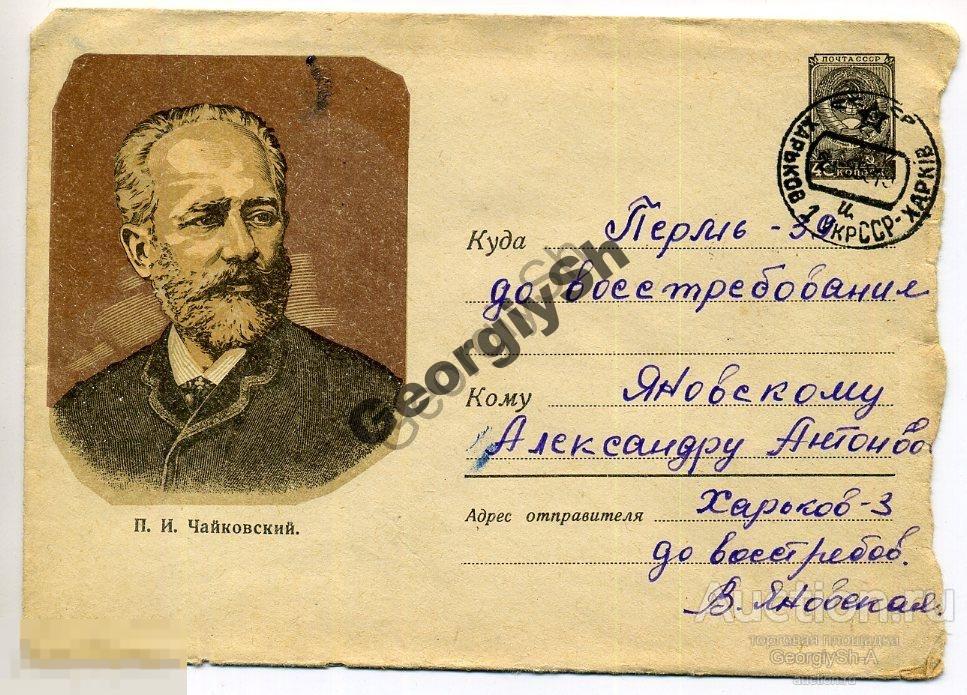 ПОЧТА СССР
40 КОПЕЕК
ХАРЬКОВ 19 УКРССР-ХАРКІВ
и.
Куда Пермь-39
до восстребования
Кому Яновскому
Александру Антонов
Адрес отправителя Харьков-3
до восстребов.
В. Яновская.
П. И. Чайковский.
GeorgiySh
Auction.ru
торговая площадка
GeorgiySh-A
auction.ru